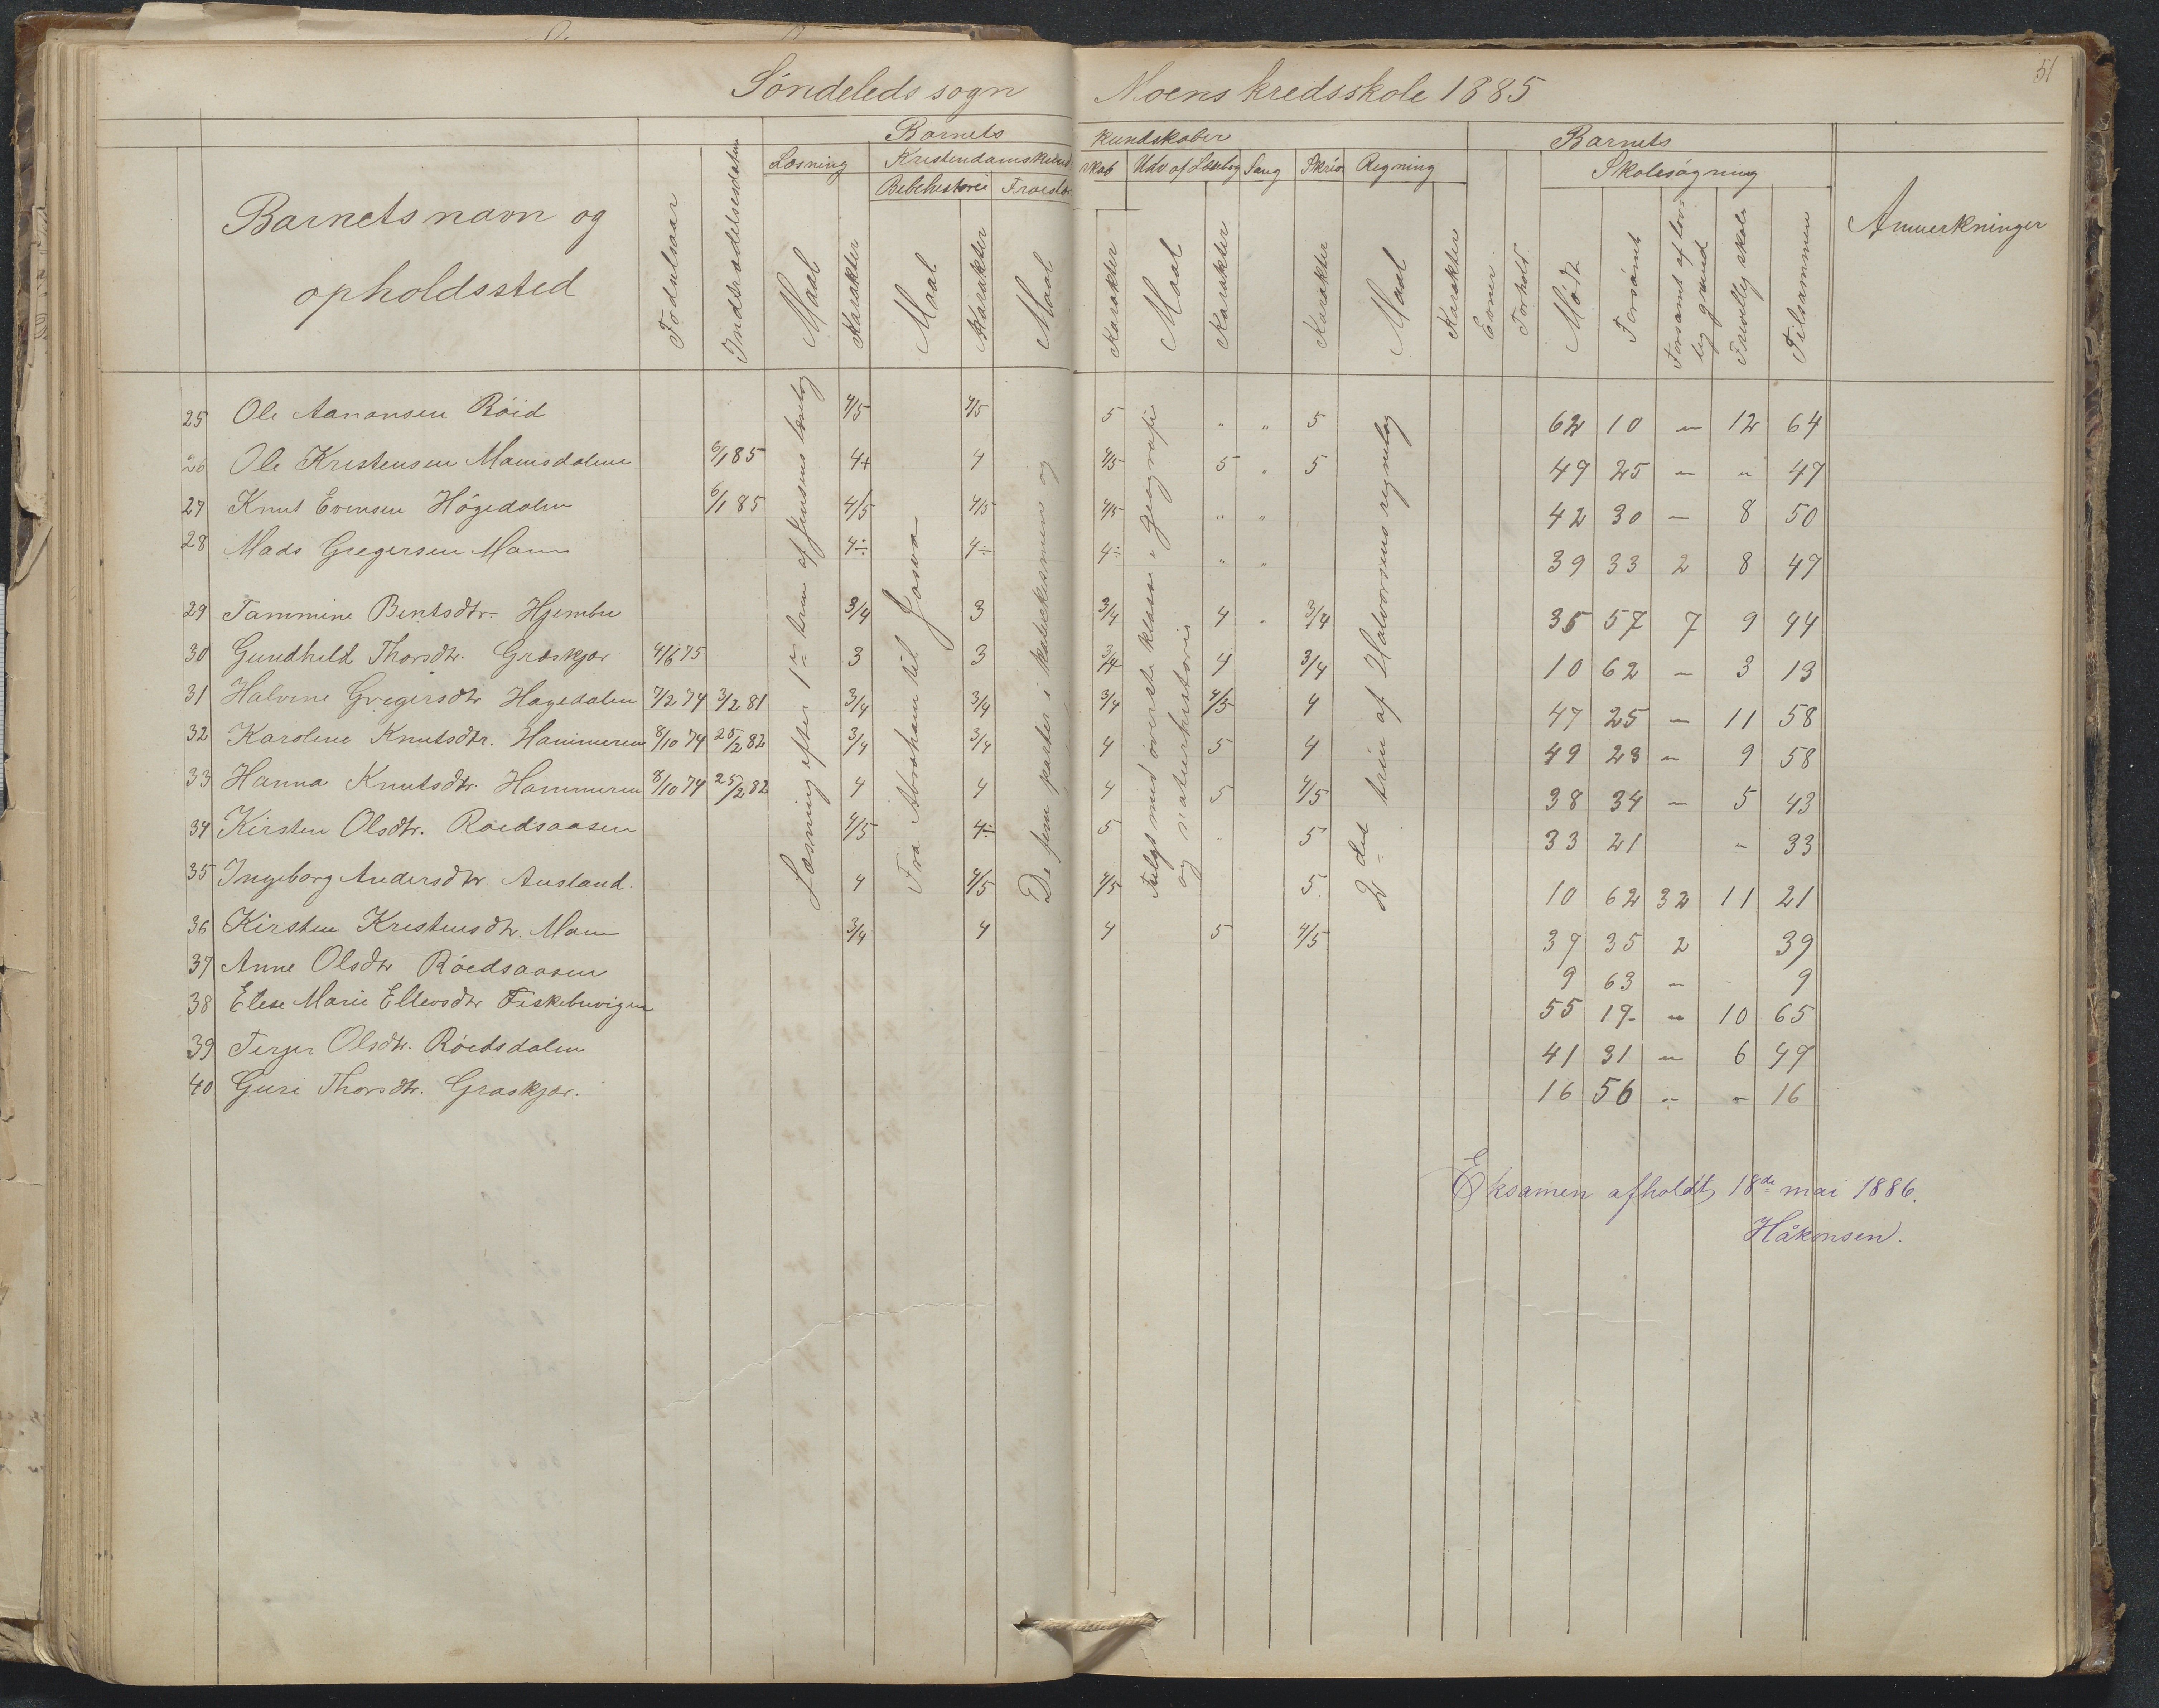 51
Söndeleds sogn Moens kredsskole 1885
Barnets navn og opholdssted
Fødselsaar
Indtrædelsesdatum
Barnets kundskaber
Læsning
Kristendomskundskab
Bibelhistorie
Troeslære
Udv. af Læsebog
Sang
Skriv.
Regning
Maal Karakter Maal Karakter Maal Karakter Maal Karakter Karakter Maal Karakter
Evner
Forhold.
Barnets Skolesøgning
Mødt
Forsømt
Forsømt af lovlig grund
Frivillig skole
Tilsammen
Anmerkninger
Læsning efter 1ste trin af Jensens læsebog
Fra Abraham til Josva
De fem parter i katekismen og
Fulgt med øverste klasse i geografi og naturhistorie
2det trin af Halvorsens regnebog
25 Ole Aanonsen Röid 4/5 4/5 5 " " 5 62 10 " 12 64
26 Ole Kristensen Moensdalen 6/1 85 4+ 4 4/5 5 " 5 49 25 " " 47
27 Knut Evensen Högedalen 6/1 85 4/5 4/5 4/5 " " 42 30 - 8 50
28 Mads Gregersen Moen 4÷ 4÷ 4÷ " " 39 33 2 8 47
29 Tammine Bentsdtr. Hjembu 3/4 3 3/4 4 " 3/4 35 57 7 9 44
30 Gundhild Thorsdtr. Græskjær 4/6 75 3 3 3/4 4 3/4 10 62 - 3 13
31 Halvine Gregersdtr Høgedalen 7/2 74 3/2 81 3/4 3/4 3/4 4/5 4 47 25 - 11 58
32 Karoline Knutsdtr. Hammeren 8/10 74 25/2 82 3/4 3/4 4 5 4 49 23 " 9 58
33 Hanna Knutsdtr. Hammeren 8/10 74 25/2 82 4 4 4 5 4/5 38 34 - 5 43
34 Kirsten Olsdtr. Röedsaasen 4/5 4÷ 5 " 5 33 21 " 33
35 Ingeborg Andersdtr. Ausland. 4 4/5 4/5 5 10 62 32 11 21
36 Kirsten Kristensdtr. Moen 3/4 4 4 5 4/5 37 35 2 39
37 Anne Olsdtr Röedsaasen 9 63 " 9
38 Elise Marie Ellevsdtr Fiskebuvigen 55 19 " 10 65
39 Terjer Olsdtr. Röedsdalen 41 31 " 6 47
40 Guri Thorsdtr. Græskjær. 16 56 " " 16
Eksamen afholdt 18de mai 1886.
Håkonsen.